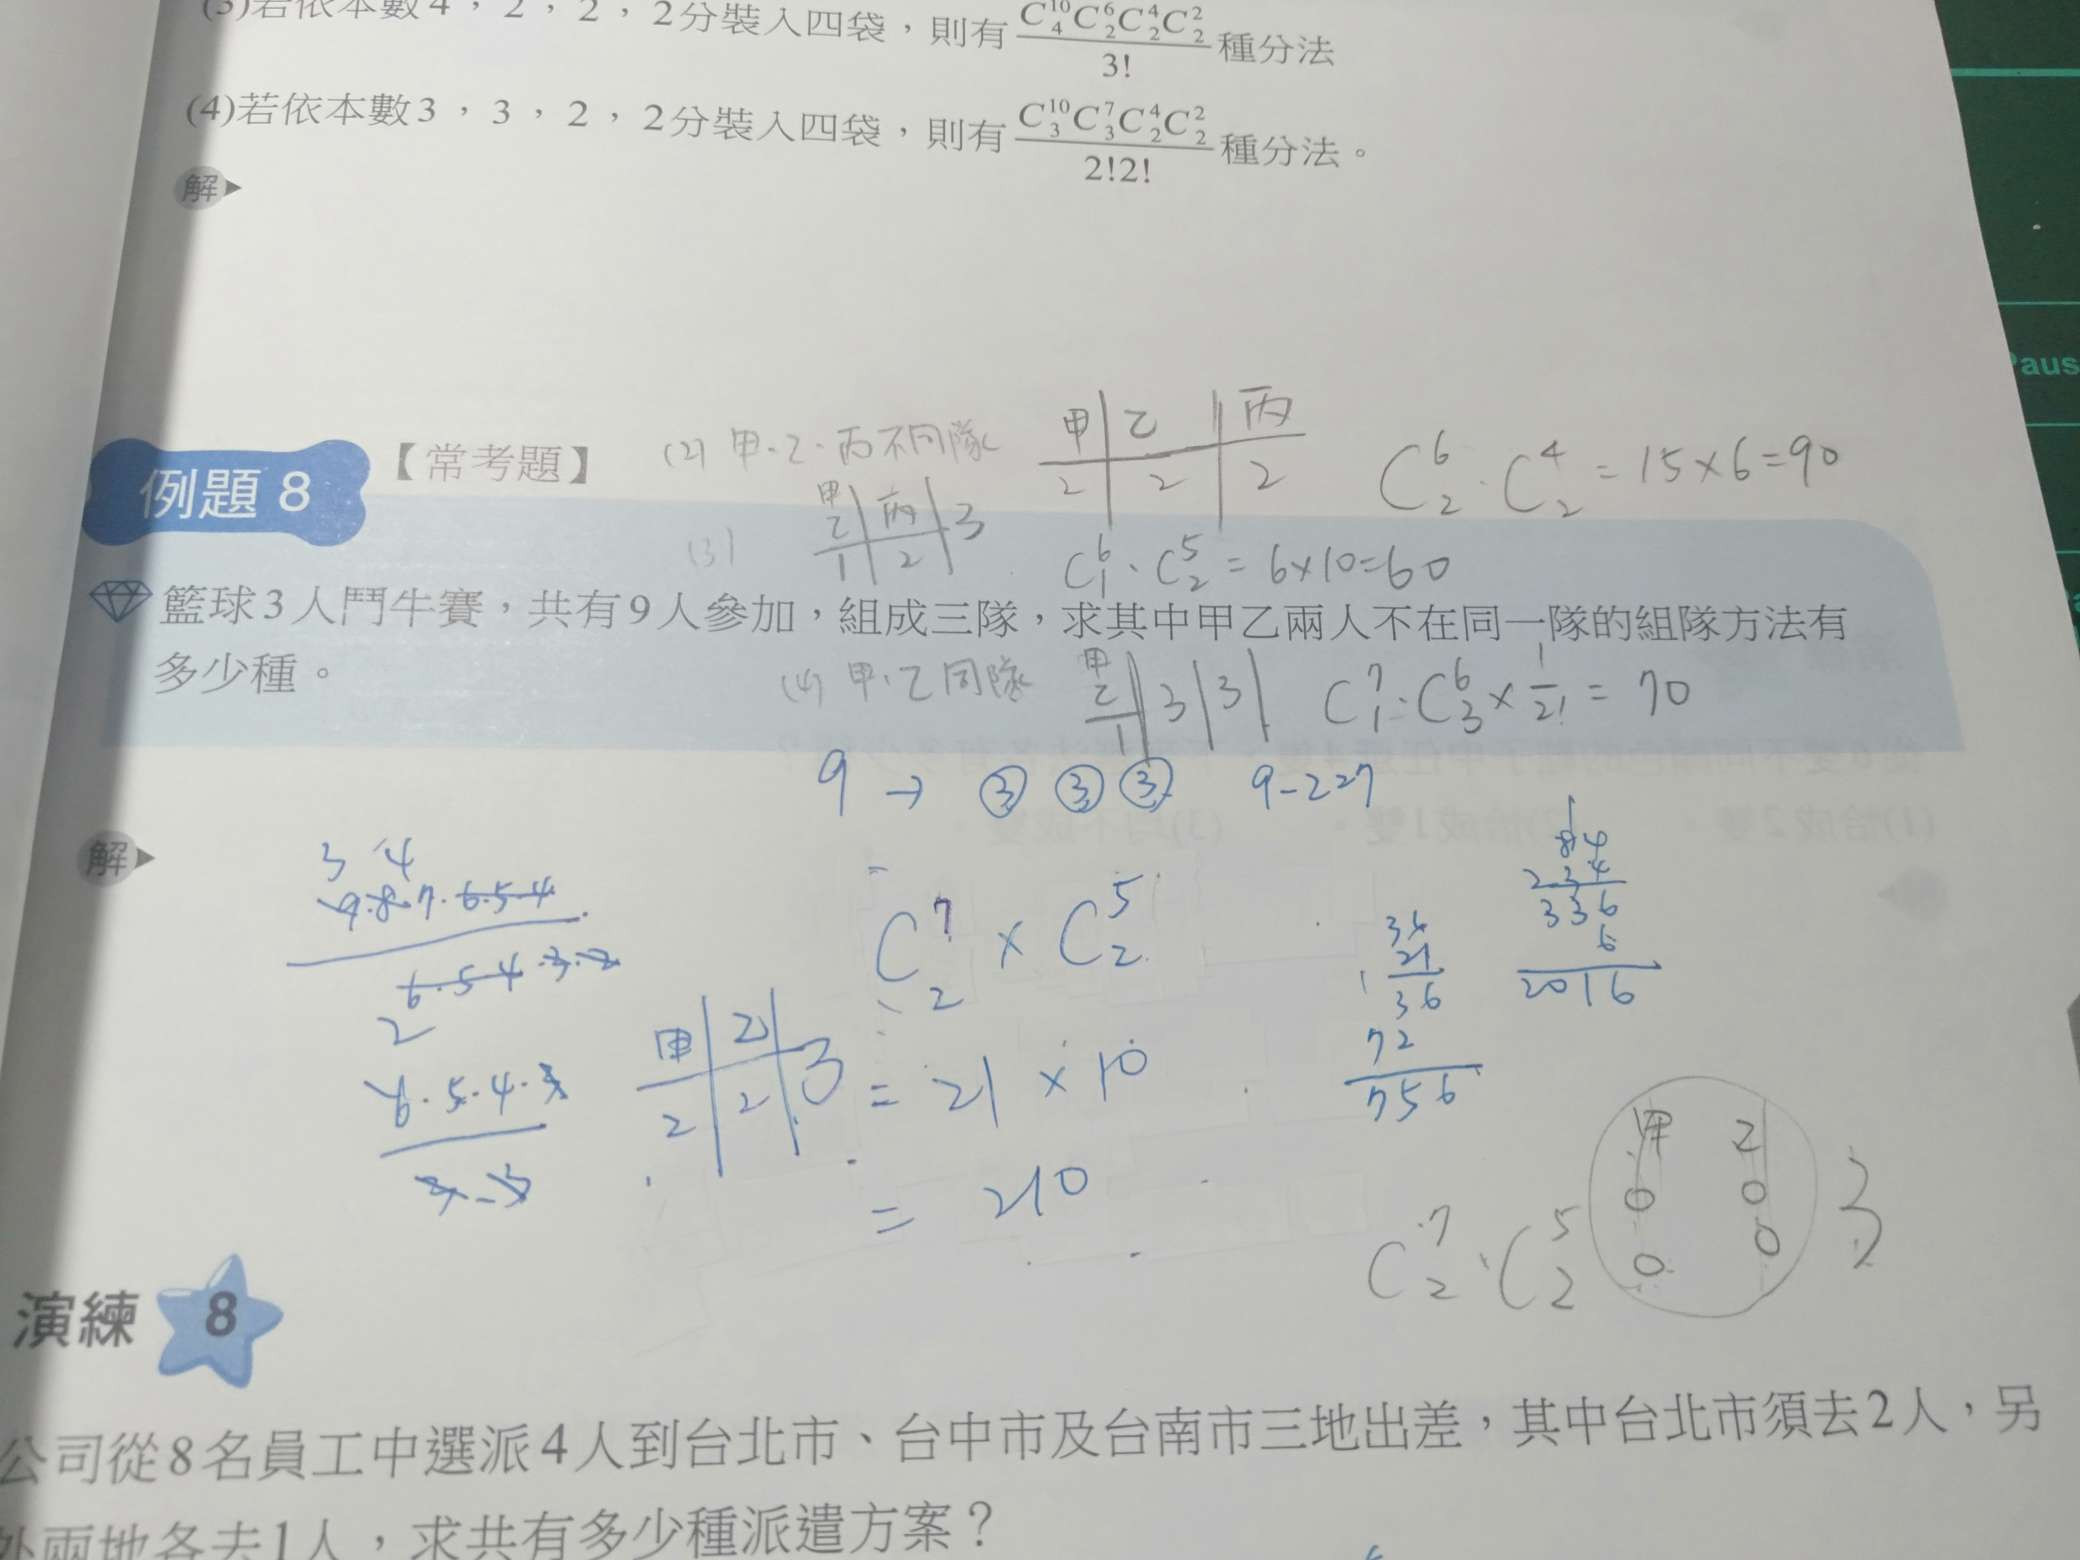 (3)若依本數4，2，2，2分裝入四袋，則有 C¹⁰₄C⁶₂C⁴₂C²₂ / 3! 種分法
(4)若依本數3，3，2，2分裝入四袋，則有 C¹⁰₃C⁷₃C⁴₂C²₂ / 2!2! 種分法。
解
例題 8 【常考題】
(2) 甲、乙、丙不同隊 甲|乙|丙
2|2|2
C⁶₂·C⁴₂=15×6=90
(3) 甲乙|丙|3
1|2
C⁶₁·C⁵₂=6×10=60
籃球3人鬥牛賽，共有9人參加，組成三隊，求其中甲乙兩人不在同一隊的組隊方法有
多少種。
(4) 甲、乙同隊 甲乙|3|3|
1
C⁷₁·C⁶₃×1/2!=70
9→③③③ 9-2=7
解
3 4
9·8·7·6·5·4
6·5·4·3·2
2
6·5·4·3
甲|乙|3
2|2
C⁷₂×C⁵₂
=21×10
=210
36
21
36
72
756
84
336
6
2016
甲 乙
0 0
0 0
3
C⁷₂·C⁵₂
演練 8
公司從8名員工中選派4人到台北市、台中市及台南市三地出差，其中台北市須去2人，另
外兩地各去1人，求共有多少種派遣方案？